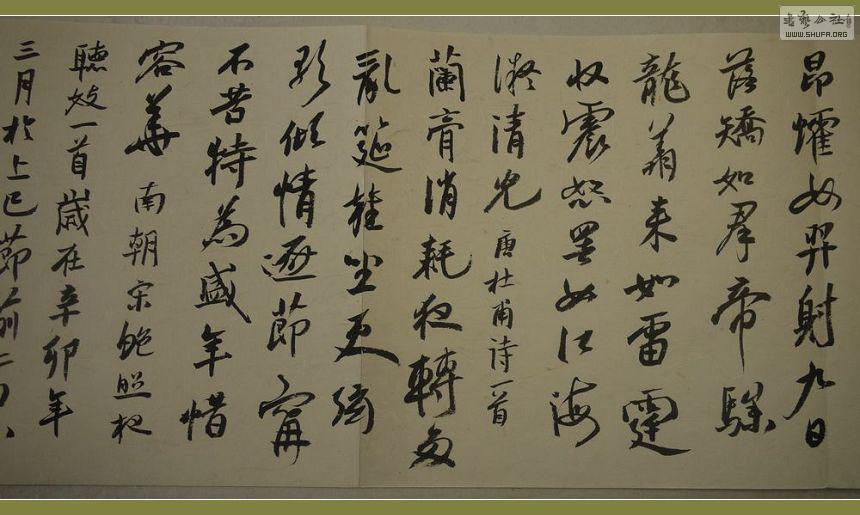 昂燿如羿射九日
落矯如群帝驂
龍翔来如雷霆
收震怒罷如江海
凝清光 唐杜甫诗一首
蘭膏消耗夜轉多
亂筵雜坐更絃
歌傾情逐節寧
不苦特為盛年惜
容華 南朝宋鲍照夜
聽妓一首歲在辛卯年
三月於上巳節前二日
書藝公社
WWW.SHUFA.ORG